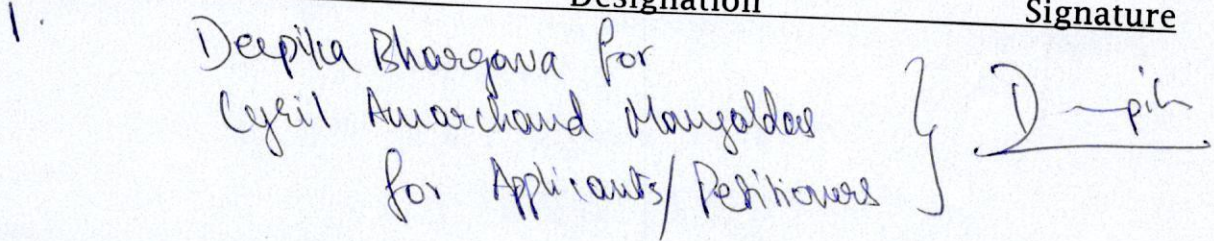 Designation Signature
1. Deepika Bhargava for
Cyril Amarchand Mangaldas } D pik
for Applicants/Petitioners